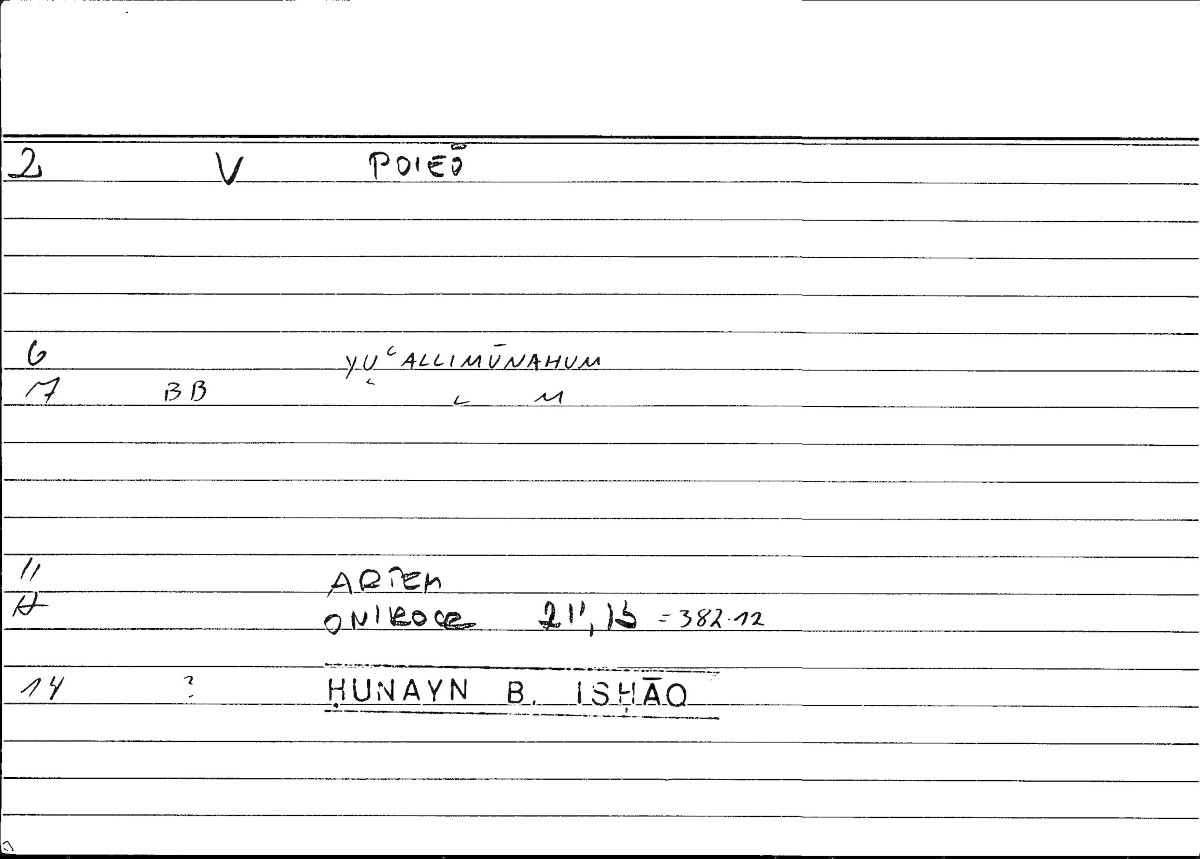 2 V POIEŌ
6 YUʿALLIMŪNAHUM
7 BB L M
11 ARTEM
ONIROCR 211, 15 = 382.12
14 ? ḤUNAYN B. ISḤĀQ